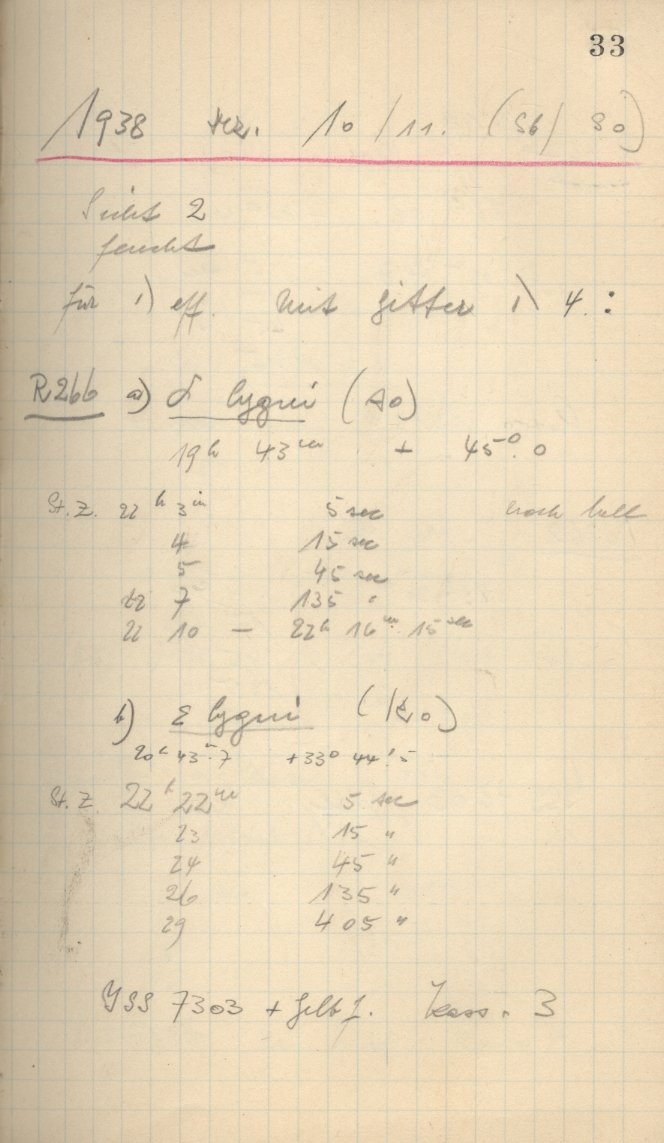 33
1938 10/11. (Sb/So)
Sicht 2
feucht
für 1) eff. mit Gitter 1) 4.:
R266 a) δ Cygni (A0)
19h 43m + 45°.0
St.Z. 22h 3m 5 sec noch hell
4 15 sec
5 45 sec
22 7 135 "
22 10 — 22h 16m 15sec
b) ε Cygni (K0)
20h 43m.7 +33° 44'.5
St.Z. 22h 22m 5 sec
23 15 "
24 45 "
26 135 "
29 405 "
7303 + Gelbf. Kass. 3